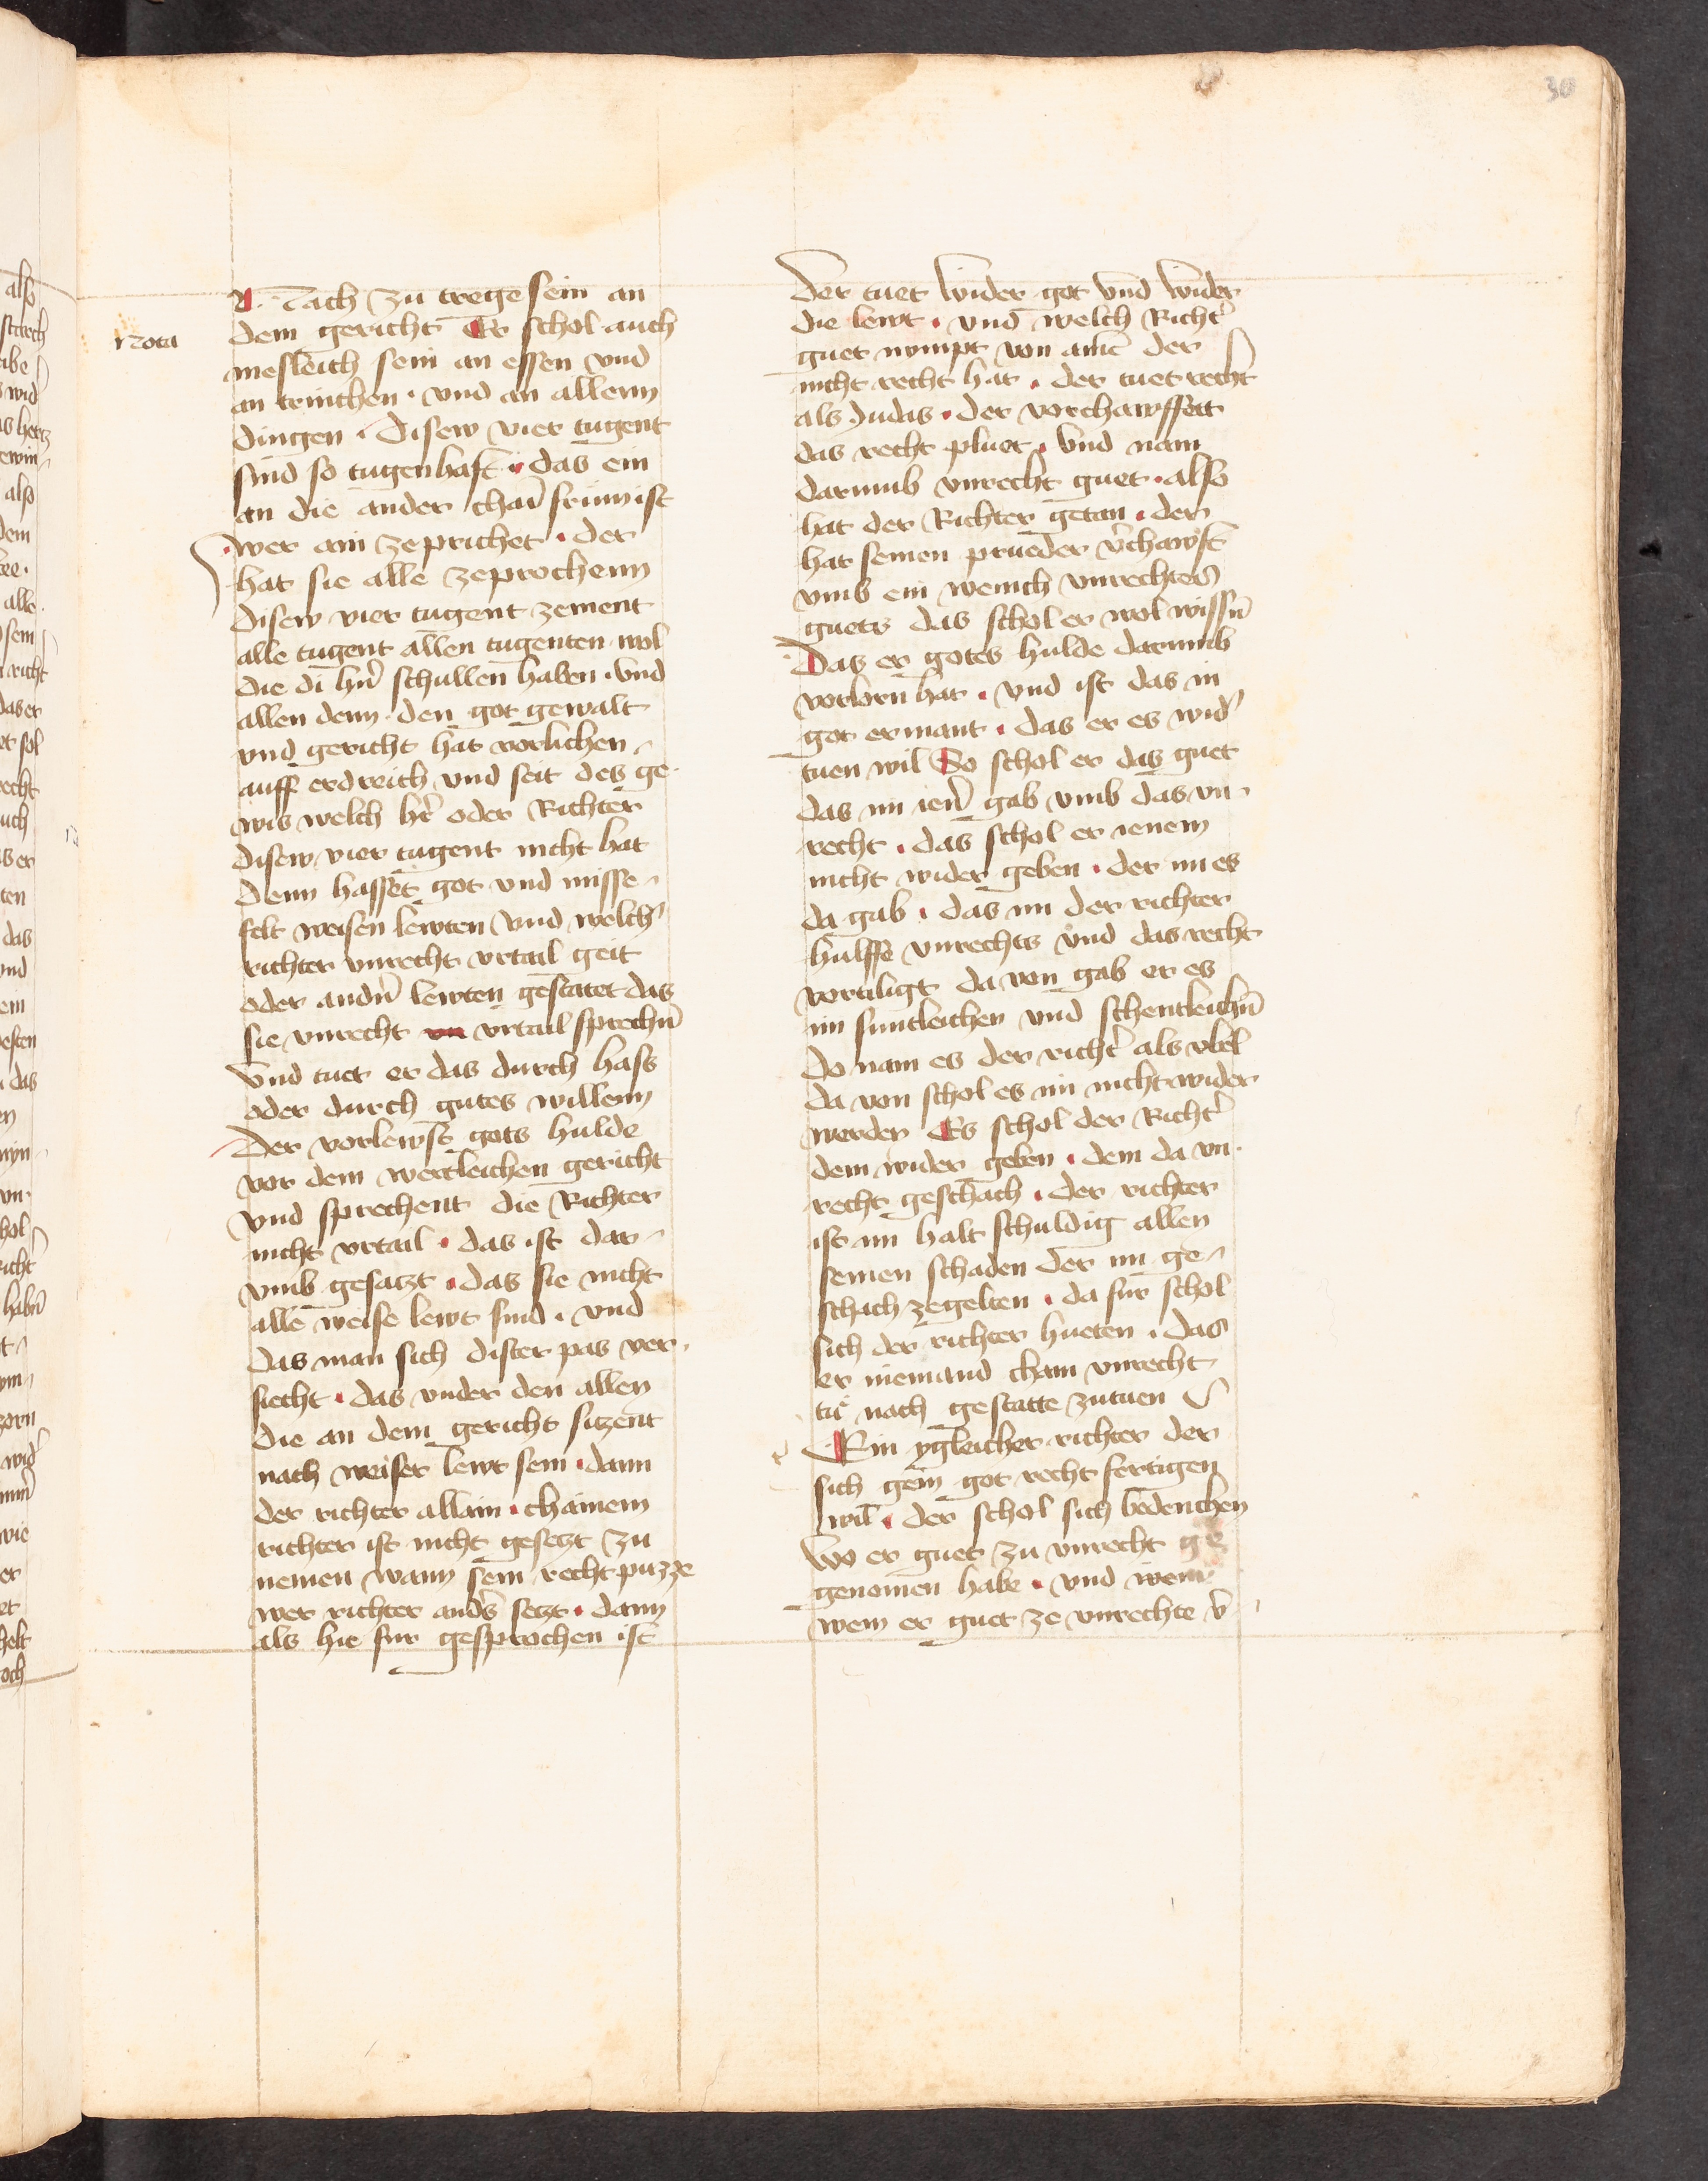 30
Nota
N. Nach zu trege sein an
dem gericht Er schol auch
mesleich sein an essen vnd
an trinchen · vnd an allenn
dingen · Disew vier tugent
sind so tugenhaft · das ein
an die ander chain frum ist
wer ain zeprichet · der
hat sie alle zeprochenn
disew vier tugent zement
alle tugent allen tugenten wol
die di hr̄n schullen haben · vnd
allen denn den got gewalt
vnd gericht hat vorlichen
auff erdreich vnd seit des ge
wis welch hr̄ oder Richter
disew vier tugent nicht hat
denn hasset got vnd misse
felt weisen lewten vnd welch
richter vnrecht vrtail geit
oder andn̄ lewten gestatet das
sie vnrecht vrtail sprechn̄
vnd tuet er das durch hass
oder durch gutes willenn
Der vorlewst gots hulde
vor dem wertleichen gericht
vnd sprechent die Richter
nicht vrtail · das ist dar
vmb gesaczt · das sie nicht
alle weise lewt sind · vnd
das man sich dister pas ver
siecht · das vnder den allen
die an dem gericht siczent
nach weiser lewt sein · dann
der richter allain · chainem
richter ist nicht gesetzt zu
nemen wann sein recht puzze
wer richter anders setzt · dann
als hie fur gesprochen ist
Der tuet wider got vnd wider
die lewt · vnd welch Richt̄
guet nympt von aim̄ der
nicht recht hat · der tuet recht
als Judas · der vorchawffett
das recht pluet · vnd nam
darumb vnrecht guet · also
hat der Richter getan · der
hat seinen prueder v̄chawft
vmb ein wenich vnrechtes
guets das schol er wol wissn̄
Das er gotes hulde darumb
vorlorn hat · vnd ist das in
got ermant · das er es wid̄
tuen wil So schol er das guet
das im ien̄ gab vmb das vn
recht · das schol er ienem
nicht wider geben · der im es
da gab · das im der richter
hulffe vnrechts vnd das recht
vertiligt da von gab er es
im suntleichen vnd schentleichn̄
do nam es der richt̄ als vbel
da von schol es im nicht wider
werden Es schol der Richt̄
dem wider geben · dem da vn
recht geschach · der richter
ist im halt schuldig allen
seinen schaden der im ge
schach zegelten · da fur schol
sich der richter hueten · das
er niemand cham vnrecht
tu nach gestatte zutuen
Ein ygleicher richter der
sich gein got recht fertigen
wil · der schol sich bedenchen
wo er guet zu vnrecht ge
genomen habe · vnd wem
wem er guet ze vnrechte v̄